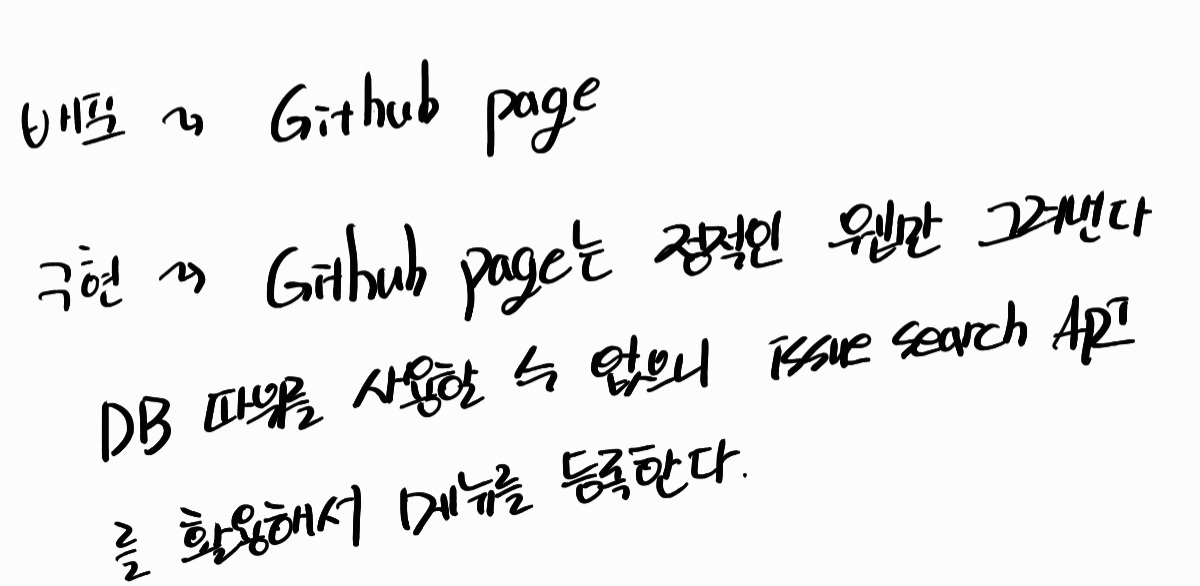 배포 ~> Github page
구현 ~> Github page는 정적인 웹만 그려낸다
DB 따위를 사용할 수 없으니 issue search API
를 활용해서 메뉴를 등록한다.